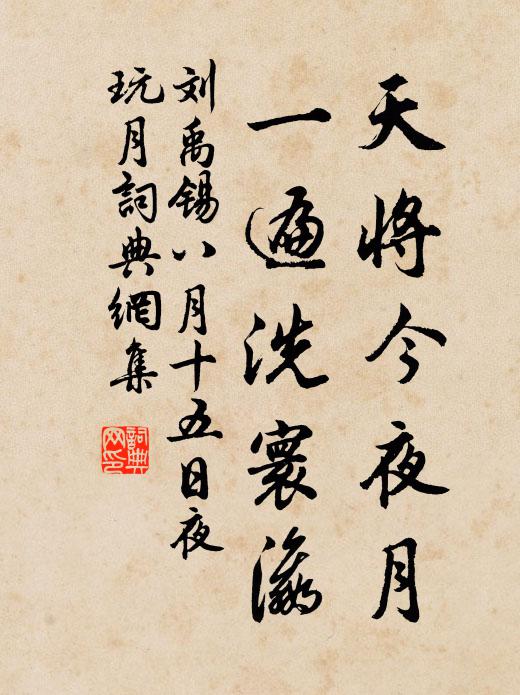 天将今夜月
一遍洗寰瀛
刘禹锡八月十五日夜
玩月詞典網集
詞典网印